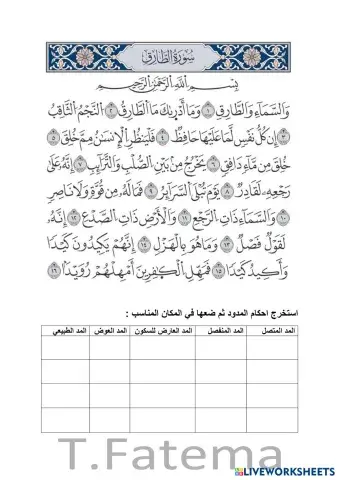 سُورَةُ الطَّارِقِ
بِسْمِ اللَّهِ الرَّحْمَٰنِ الرَّحِيمِ
وَالسَّمَاءِ وَالطَّارِقِ ١ وَمَا أَدْرَىٰكَ مَا الطَّارِقُ ٢ النَّجْمُ الثَّاقِبُ
٣ إِن كُلُّ نَفْسٍ لَّمَّا عَلَيْهَا حَافِظٌ ٤ فَلْيَنظُرِ الْإِنسَٰنُ مِمَّ خُلِقَ ٥
خُلِقَ مِن مَّاءٍ دَافِقٍ ٦ يَخْرُجُ مِن بَيْنِ الصُّلْبِ وَالتَّرَائِبِ ٧ إِنَّهُ عَلَىٰ
رَجْعِهِ لَقَادِرٌ ٨ يَوْمَ تُبْلَى السَّرَائِرُ ٩ فَمَا لَهُ مِن قُوَّةٍ وَلَا نَاصِرٍ
١٠ وَالسَّمَاءِ ذَاتِ الرَّجْعِ ١١ وَالْأَرْضِ ذَاتِ الصَّدْعِ ١٢ إِنَّهُ
لَقَوْلٌ فَصْلٌ ١٣ وَمَا هُوَ بِالْهَزْلِ ١٤ إِنَّهُمْ يَكِيدُونَ كَيْدًا
١٥ وَأَكِيدُ كَيْدًا ١٦ فَمَهِّلِ الْكَٰفِرِينَ أَمْهِلْهُمْ رُوَيْدًا
استخرج احكام المدود ثم ضعها في المكان المناسب :
المد المتصل المد المنفصل المد العارض للسكون المد العوض المد الطبيعي
T.Fatema
LIVEWORKSHEETS